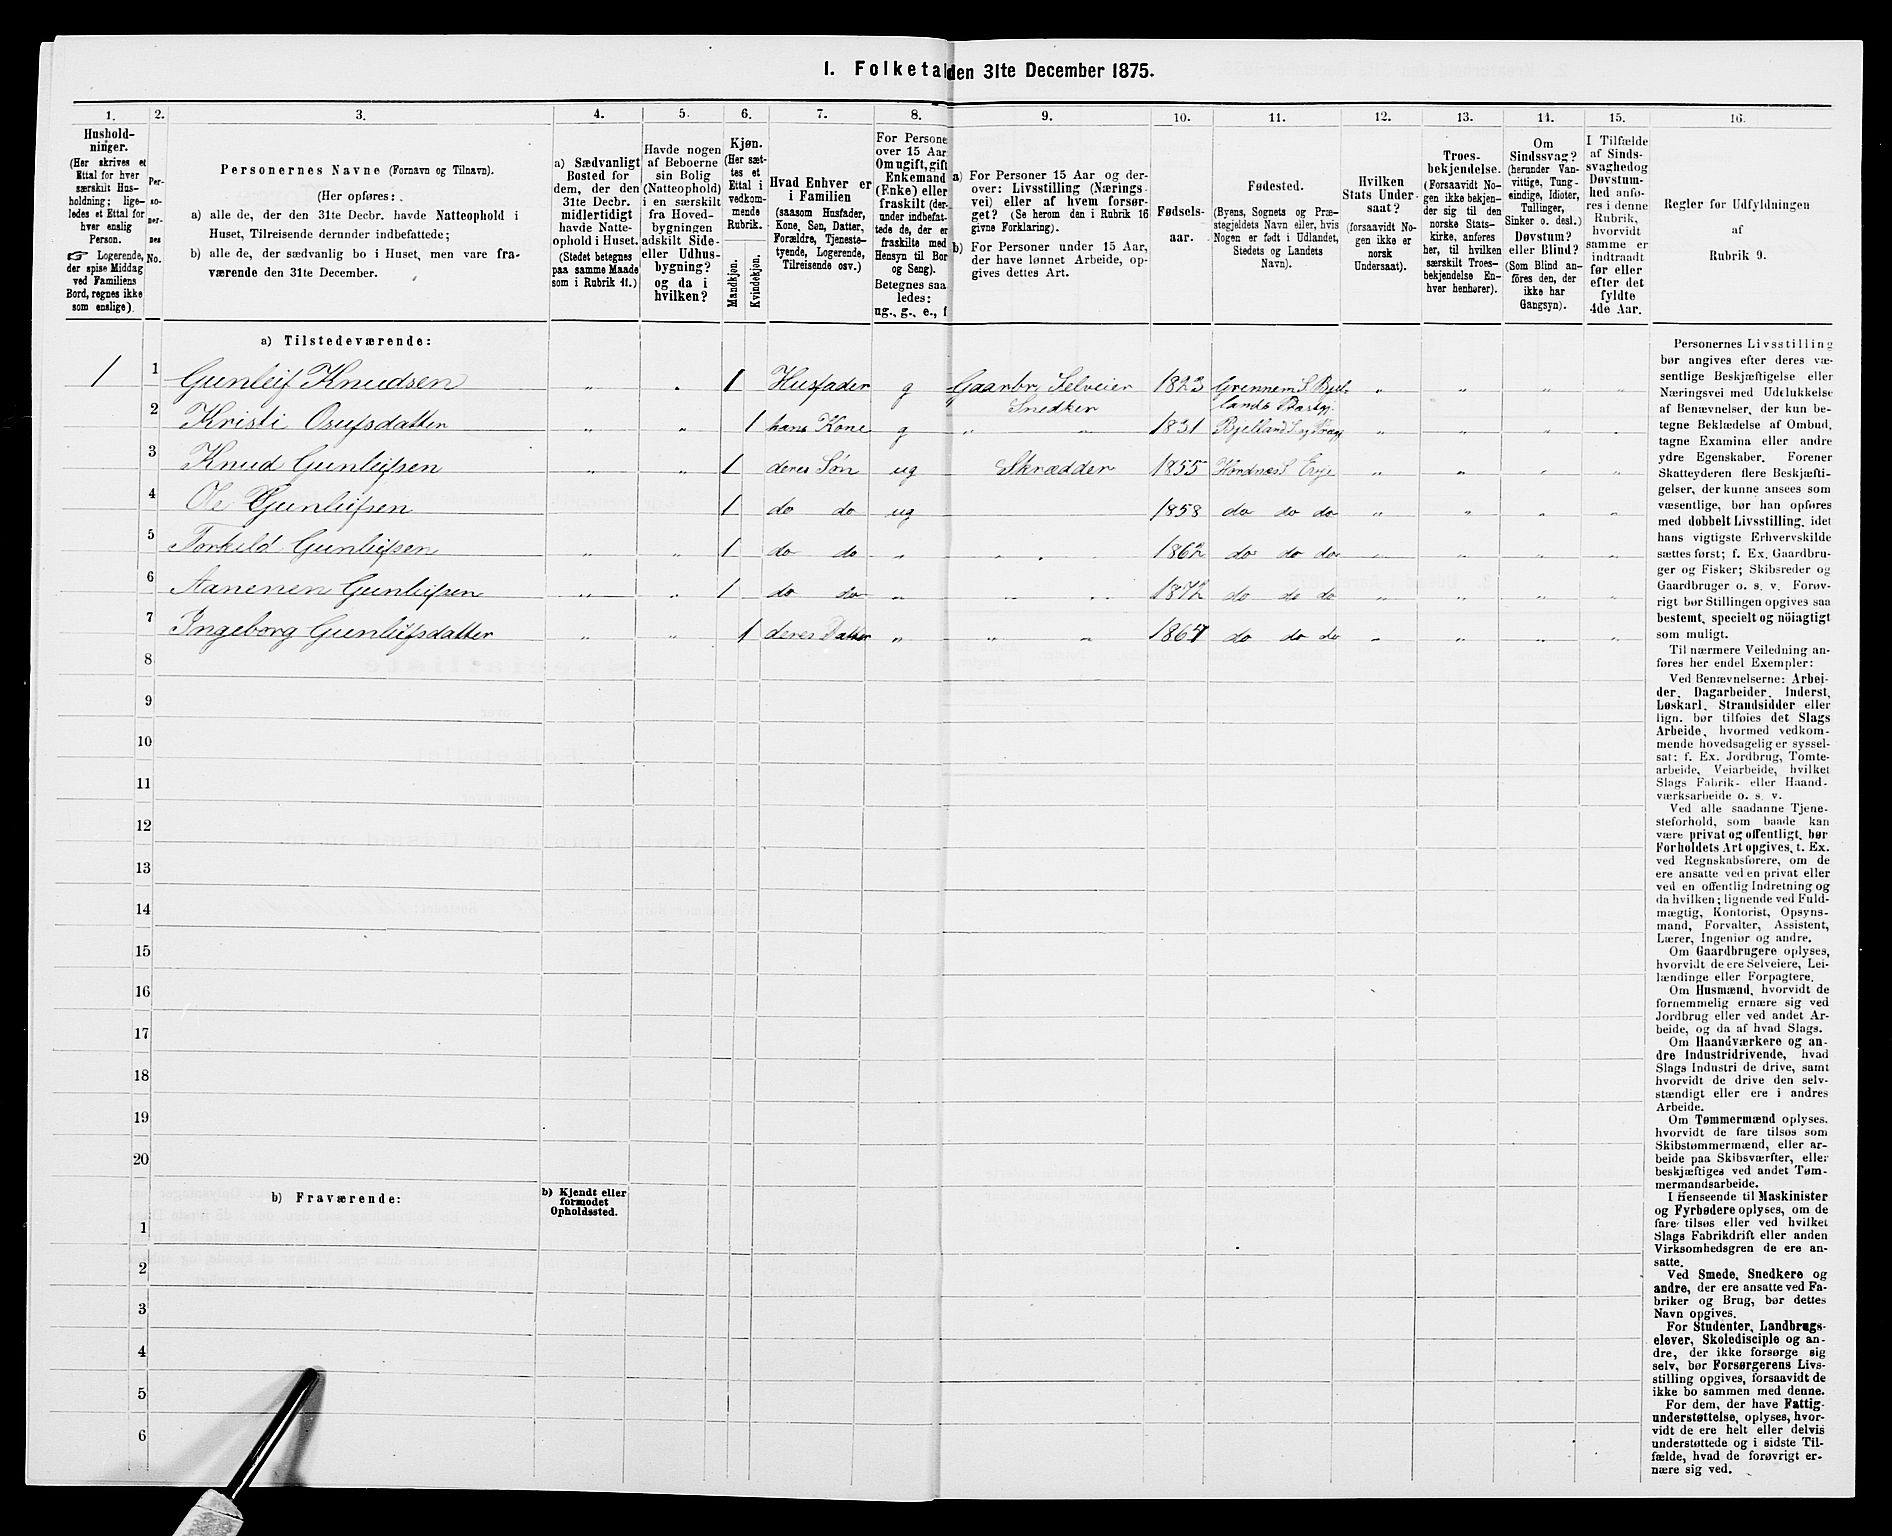 1. Folketal den 31te December 1875.
1.
2.
3.
4.
5.
6.
7.
8.
9.
10.
11.
12.
13.
14.
15.
16.
Hushold-
ninger.
(Her skrives et
Ettal for hver
særskilt Hus-
holdning; lige-
ledes et Ettal for
hver enslig
Person.
☞ Logerende,
der spise Middag
ved Familiens
Bord, regnes ikke
som enslige).
Per-
so-
ner-
nes
No.
Personernes Navne (Fornavn og Tilnavn).
(Her opføres:
a) alle de, der den 31te Decbr. havde Natteophold i
Huset, Tilreisende derunder indbefattede;
b) alle de, der sædvanlig bo i Huset, men vare fra-
værende den 31te December.
a) Sædvanligt
Bosted for
dem, der den
31te Decbr.
midlertidigt
havde Natte-
ophold i Huset.
(Stedet betegnes
paa samme Maade
som i Rubrik 11.)
Havde nogen
af Beboerne
sin Bolig
(Natteophold)
i en særskilt
fra Hoved-
bygningen
adskilt Side-
eller Udhus-
bygning?
og da i
hvilken?
Kjøn.
(Her sæt-
tes et
Ettal i
vedkom-
mende
Rubrik.
Mandkjøn.
Kvindekjøn.
Hvad Enhver er
i Familien
(saasom Husfader,
Kone, Søn, Datter,
Forældre, Tjeneste-
tyende, Logerende,
Tilreisende osv.)
For Persone
over 15 Aar
Om ugift, gift
Enkemand
(Enke) eller
fraskilt (der-
under indbefat-
tede de, der er
fraskilte med
Hensyn til Bor
og Seng).
Betegnes saa
ledes:
ug., g., e., f
a) For Personer 15 Aar og der-
over: Livsstilling (Nærings-
vei) eller af hvem forsør-
get? (Se herom den i Rubrik 16
givne Forklaring).
b) For Personer under 15 Aar,
der have lønnet Arbeide, op-
gives dettes Art.
Fødsels-
aar.
Fødested.
(Byens, Sognets og Præ-
stegjeldets Navn eller, hvis
Nogen er født i Udlandet,
Stedets og Landets
Navn).
Hvilken
Stats Under-
saat?
(forsaavidt No-
gen ikke er
norsk
Undersaat).
Troes-
bekjendelse.
(Forsaavidt No-
gen ikke bekjen-
der sig til den
norske Stats-
kirke, anføres
her, til hvilken
særskilt Troes-
bekjendelse En-
hver henhører).
Om
Sindssvag?
(herunder Van-
vittige, Tung-
eindige, Idioter,
Tullinger,
Sinker o. desl.)
Døvstum?
eller Blind?
(Som Blind an-
føres den, der
ikke har
Gangsyn).
I Tilfælde
af Sinds-
svaghedog
Døvstum-
hed anfø-
res i denne
Rubrik,
hvorvidt
samme er
indtraadt
før eller
efter det
fyldte
4de Aar.
Regler for Udfyldningen
af
Rubrik 9.
a) Tilstedeværende:
1 1 Gunleif Knudsen „ „ 1 Husfader g Gaardbr. Selveier 1823 Bjel- „ „ „ „
Snedker lands
2 Kristi Osufsdatter „ „ 1 hans Kone g „ „ 1831 Bjelland „ „ „ „
3 Knud Gunleifsen „ „ 1 deres Søn ug Skrædder 1855 Hordnes S. Evje „ „ „ „
4 Ole Gunleifsen 1 do do ug 1858 do do do „ „ „ „
5 Torkild Gunleifsen „ „ 1 do do „ „ „ 1862 do do do „ „ „ „
6 Aanenen Gunleifsen „ „ 1 do do „ „ „ 1872 do do do „ „ „ „
7 Ingeborg Gunleifsdatter „ „ 1 deres Datter „ „ „ do do do „ „ „ „
8
9
10
11
12
13
14
15
16
17
18
19
20
b) Fraværende:
b) Kjendt eller
formodet
Opholdssted.
1
2
3
4
5
6
Personernes Livsstilling
bør angives efter deres væ-
sentlige Beskjæftigelse eller
Næringsvei med Udelukkelse
af Benævnelser, der kun be-
tegne Beklædelse af Ombud,
tagne Examina eller andre
ydre Egenskaber. Forener
Skatteyderen flere Beskjæfti-
gelser, der kunne ansees som
væsentlige, bør han opføres
med dobbelt Livsstilling, idet
hans vigtigste Erhvervskilde
sættes først; f. Ex. Gaardbru-
ger og Fisker; Skibsreder og
Gaardbruger o. s. v. Forøv-
rigt bør Stillingen opgives saa
bestemt, specielt og nöiagtigt
som muligt.
Til nærmere Veiledning an-
føres her endel Exempler:
Ved Benævnelserne: Arbei-
der, Dagarbeider, Inderst,
Løskarl, Strandsidder eller
lign. bør tilføies det Slags
Arbeide, hvormed vedkom-
mende hovedsagelig er syssel-
sat: f. Ex. Jordbrug, Tomte-
arbeide, Veiarbeide, hvilket
Slags Fabrik- eller Haand-
værksarbeide o. s. v.
Ved alle saadanne Tjene-
steforhold, som baade kan
være privat og offentligt, bør
Forholdets Art opgives, t. Ex.
ved Regnskabsførere, om de
ere ansatte ved en privat eller
ved en offentlig Indretning og
da hvilken; lignende ved Fuld-
mægtig, Kontorist, Opsyns-
mand, Forvalter, Assistent,
Lærer, Ingeniør og andre.
Om Gaardbrugere oplyses,
hvorvidt de ere Selveiere, Lei-
lændinge eller Forpagtere.
Om Husmænd, hvorvidt de
fornemmelig ernære sig ved
Jordbrug eller ved andet Ar-
beide, og da af hvad Slags.
Om Haandværkere og an-
dre Industridrivende, hvad
Slags Industri de drive, samt
hvorvidt de drive den selv-
stændigt eller ere i andres
Arbeide.
Om Tømmermænd oplyses,
hvorvidt de fare tilsøs som
Skibstømmermænd, eller ar-
beide paa Skibsværfter, eller
beskjæftiges ved andet Tøm-
mermandsarbeide.
I Henseende til Maskinister
og Fyrbødere oplyses, om de
fare tilsøs eller ved hvilket
Slags Fabrikdrift eller anden
Virksomhedsgren de ere an-
satte.
Ved Smede, Snedkere og
andre, der ere ansatte ved Fa-
briker og Brug, bør dettes
Navn opgives.
For Studenter, Landbrugs-
elever, Skoledisciple og an-
dre, der ikke forsørge sig
selv, bør Forsørgerens Livs-
stilling opgives, forsaavidt de
ikke bo sammen med denne.
For dem, der have Fattig-
understøttelse, oplyses, hvor-
vidt de ere helt eller delvis
understøttede og i sidste Til-
fælde, hvad de forøvrigt er-
nære sig ved.